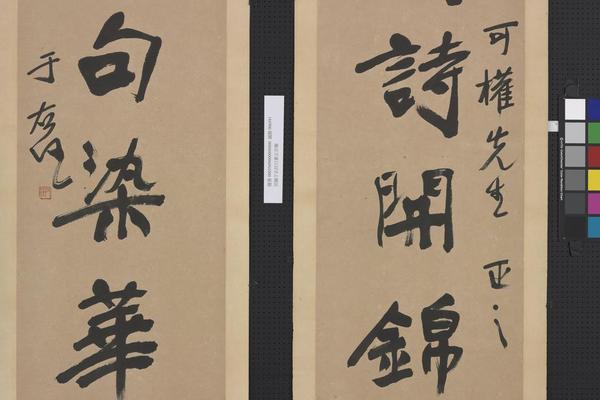 可權先生正之
詩開錦
句染華
于右任